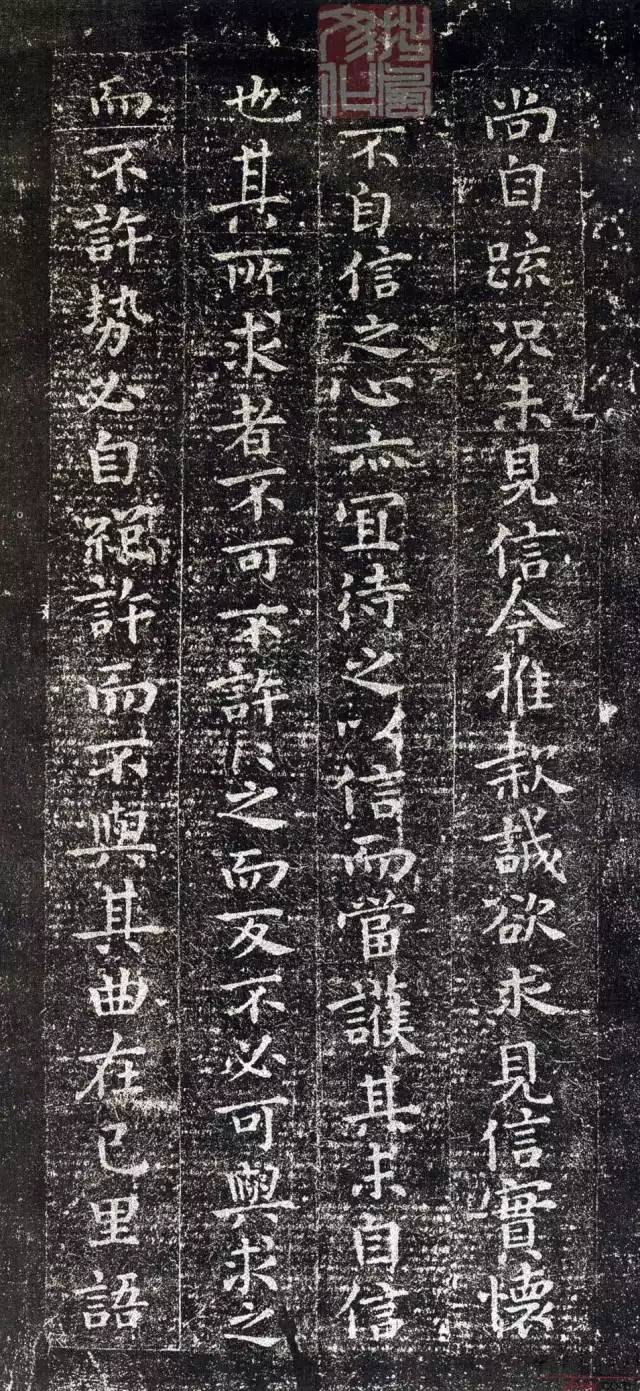 拙風文化
尚自踈况未見信今推款誠欲求見信實懷
不自信之心亦宜待之以信而當護其未自信
也其所求者不可不許〻之而反不必可與求之
而不許勢必自絕許而不與其曲在己里語